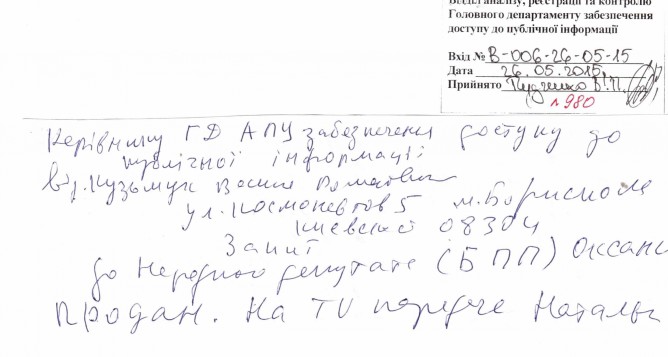 Відділ аналізу, реєстрації та контролю
Головного департаменту забезпечення
доступу до публічної інформації
Вхід № В-006-26-05-15
Дата 26.05.2015
Прийнято
980
Керівнику ГД АПУ забезпечення доступу до
публічної інформації
від. Кузьмук Васил
ул. Космонавтов 5 м. Борисполе
Киевской 08304
Запит
до Народного депутата (БПП) Оксани
Продан. На TV передаче Наталы